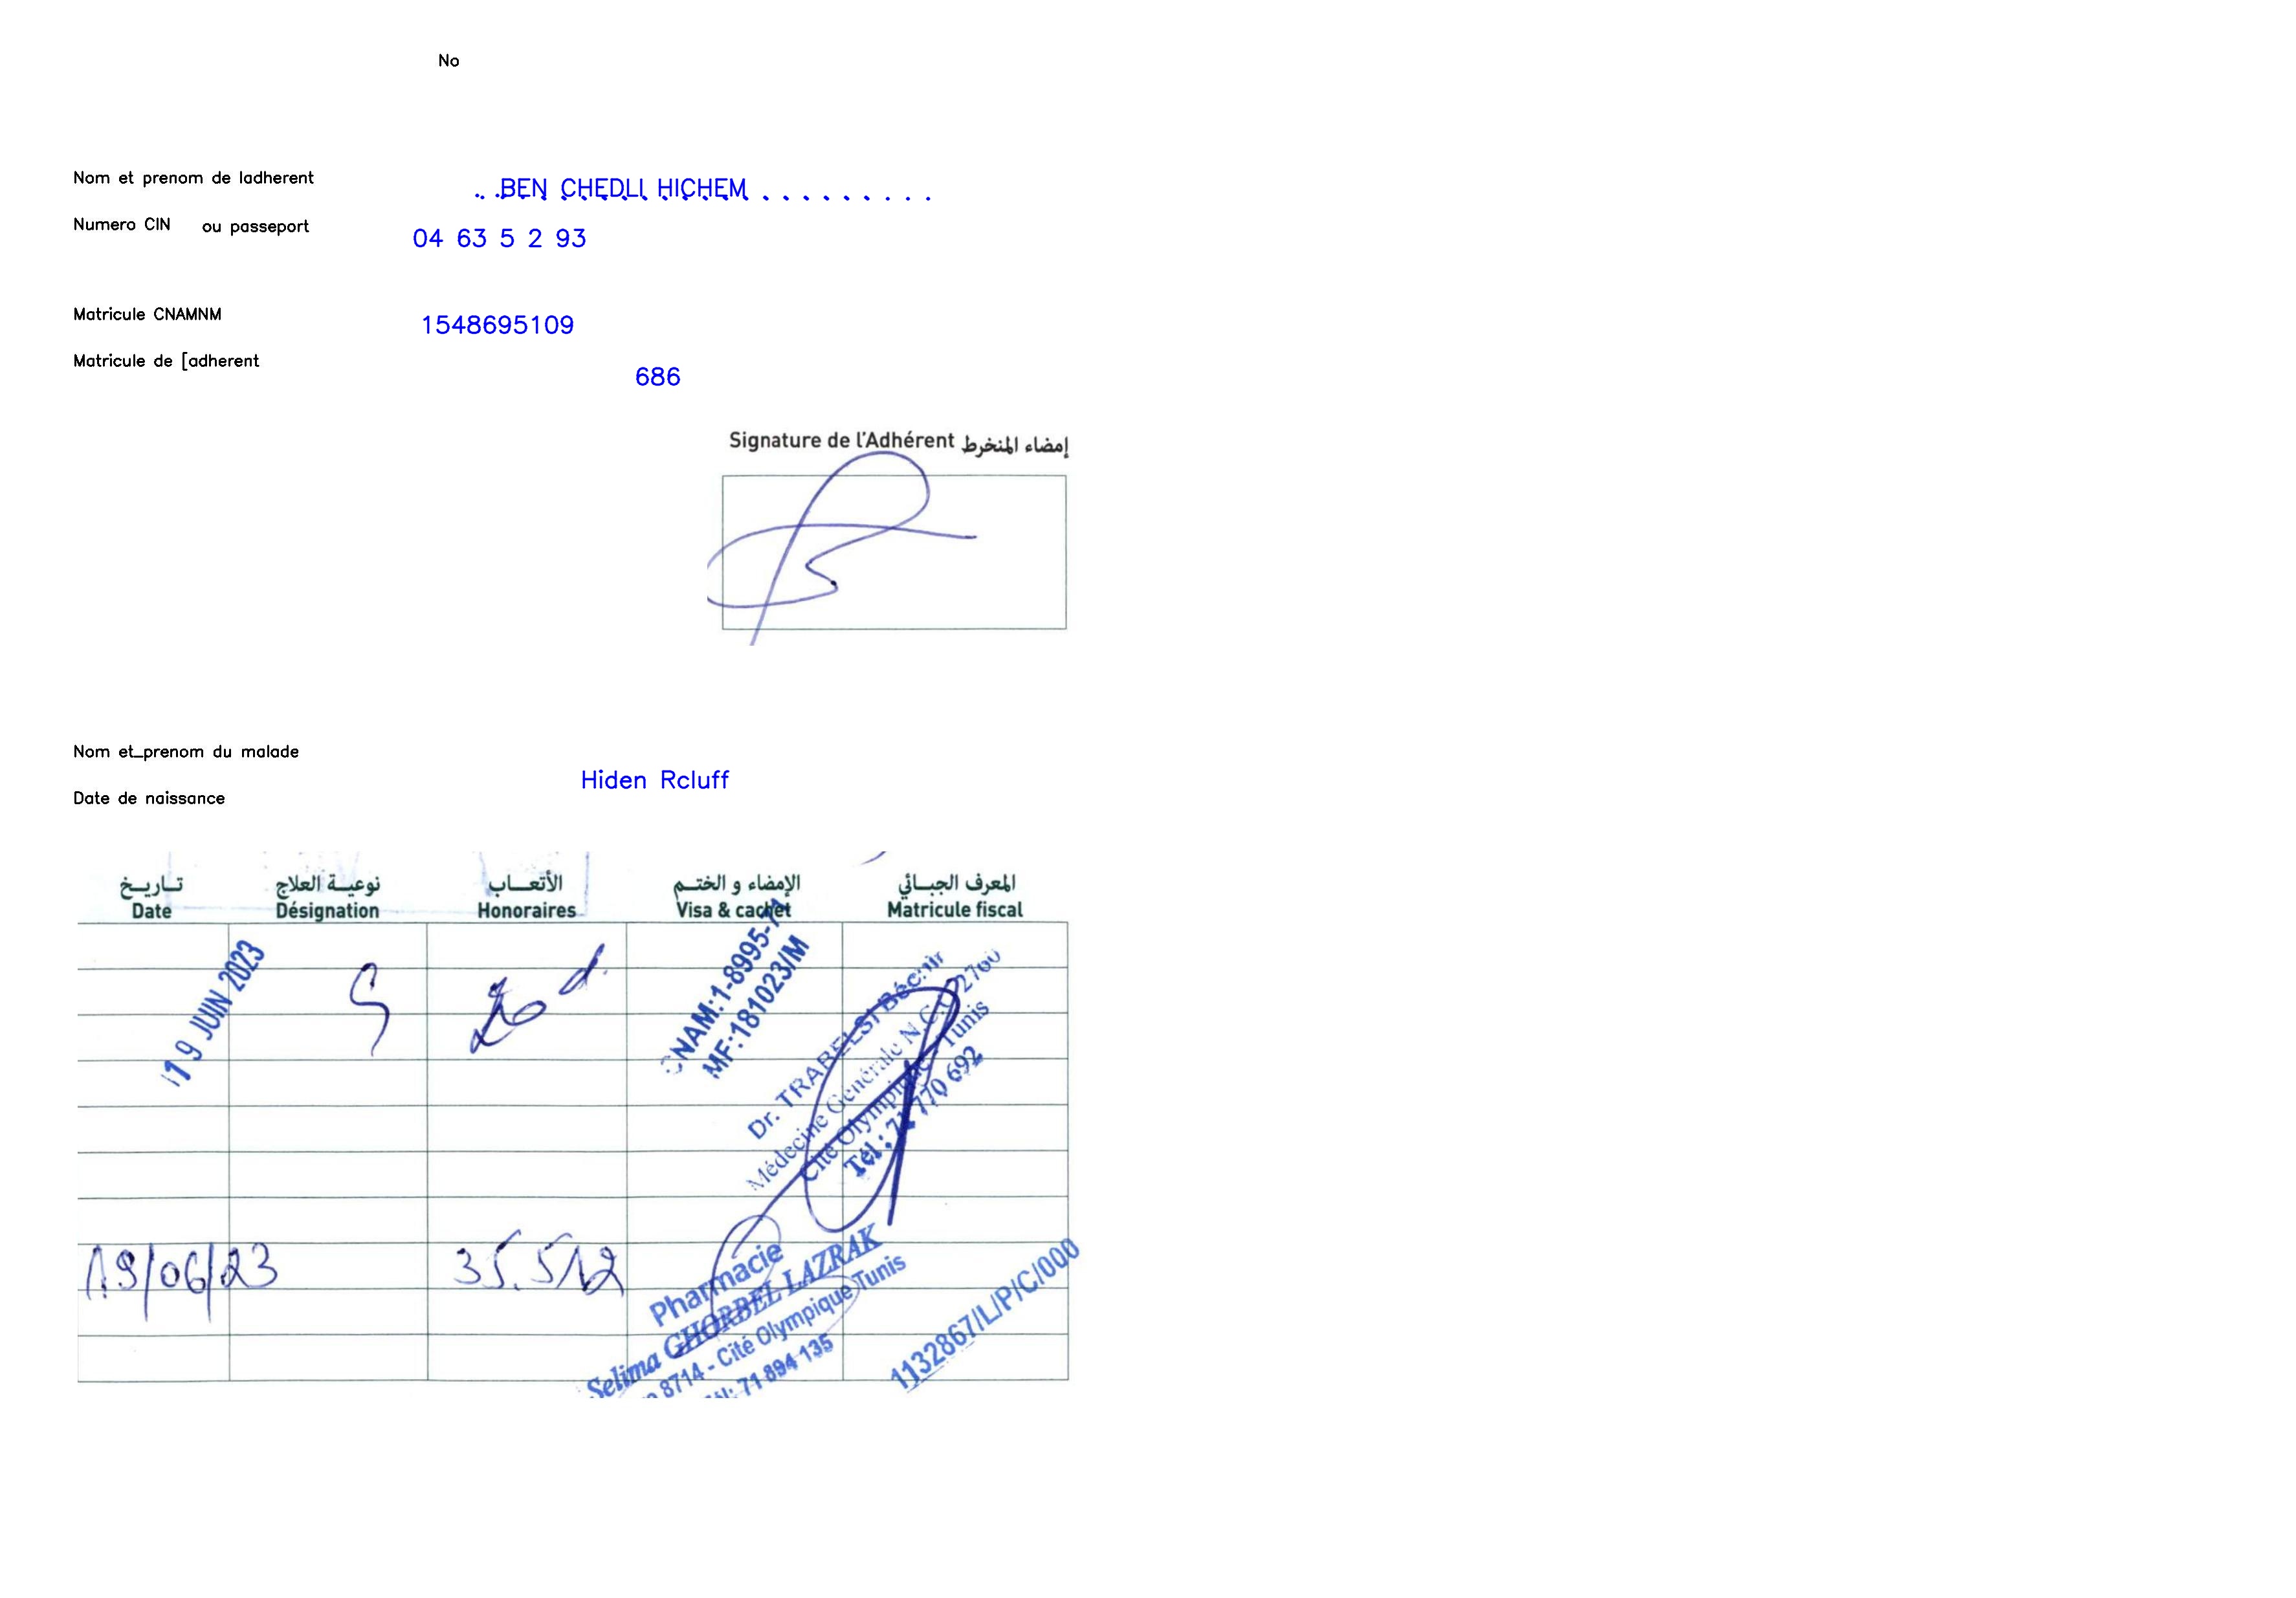 No
Nom et prenom de ladherent
. . BEN CHEDLI HICHEM . . . . . . . . .
Numero CIN ou passeport
04 63 5 2 93
Matricule CNAMNM
1548695109
Matricule de [adherent
686
Signature de l'Adhérent إمضاء المنخرط
Nom et_prenom du malade
Hiden Rcluff
Date de naissance
تاريخ نوعية العلاج الأتعاب الإمضاء و الختم المعرف الجبائي
Date Désignation Honoraires Visa & cachet Matricule fiscal
19 JUIN 2023
CNAM:1-8995-71
MF:181023/M
Dr. TRABELSI Béchir
Médecine Générale N.C.
Cité Olympique Tunis
Tél : 71 770 692
19/06/23
35.512
Pharmacie
Selima GHORBEL LAZRAK
8714 - Cité Olympique Tunis
71 894 135
1132867/L/P/C/000